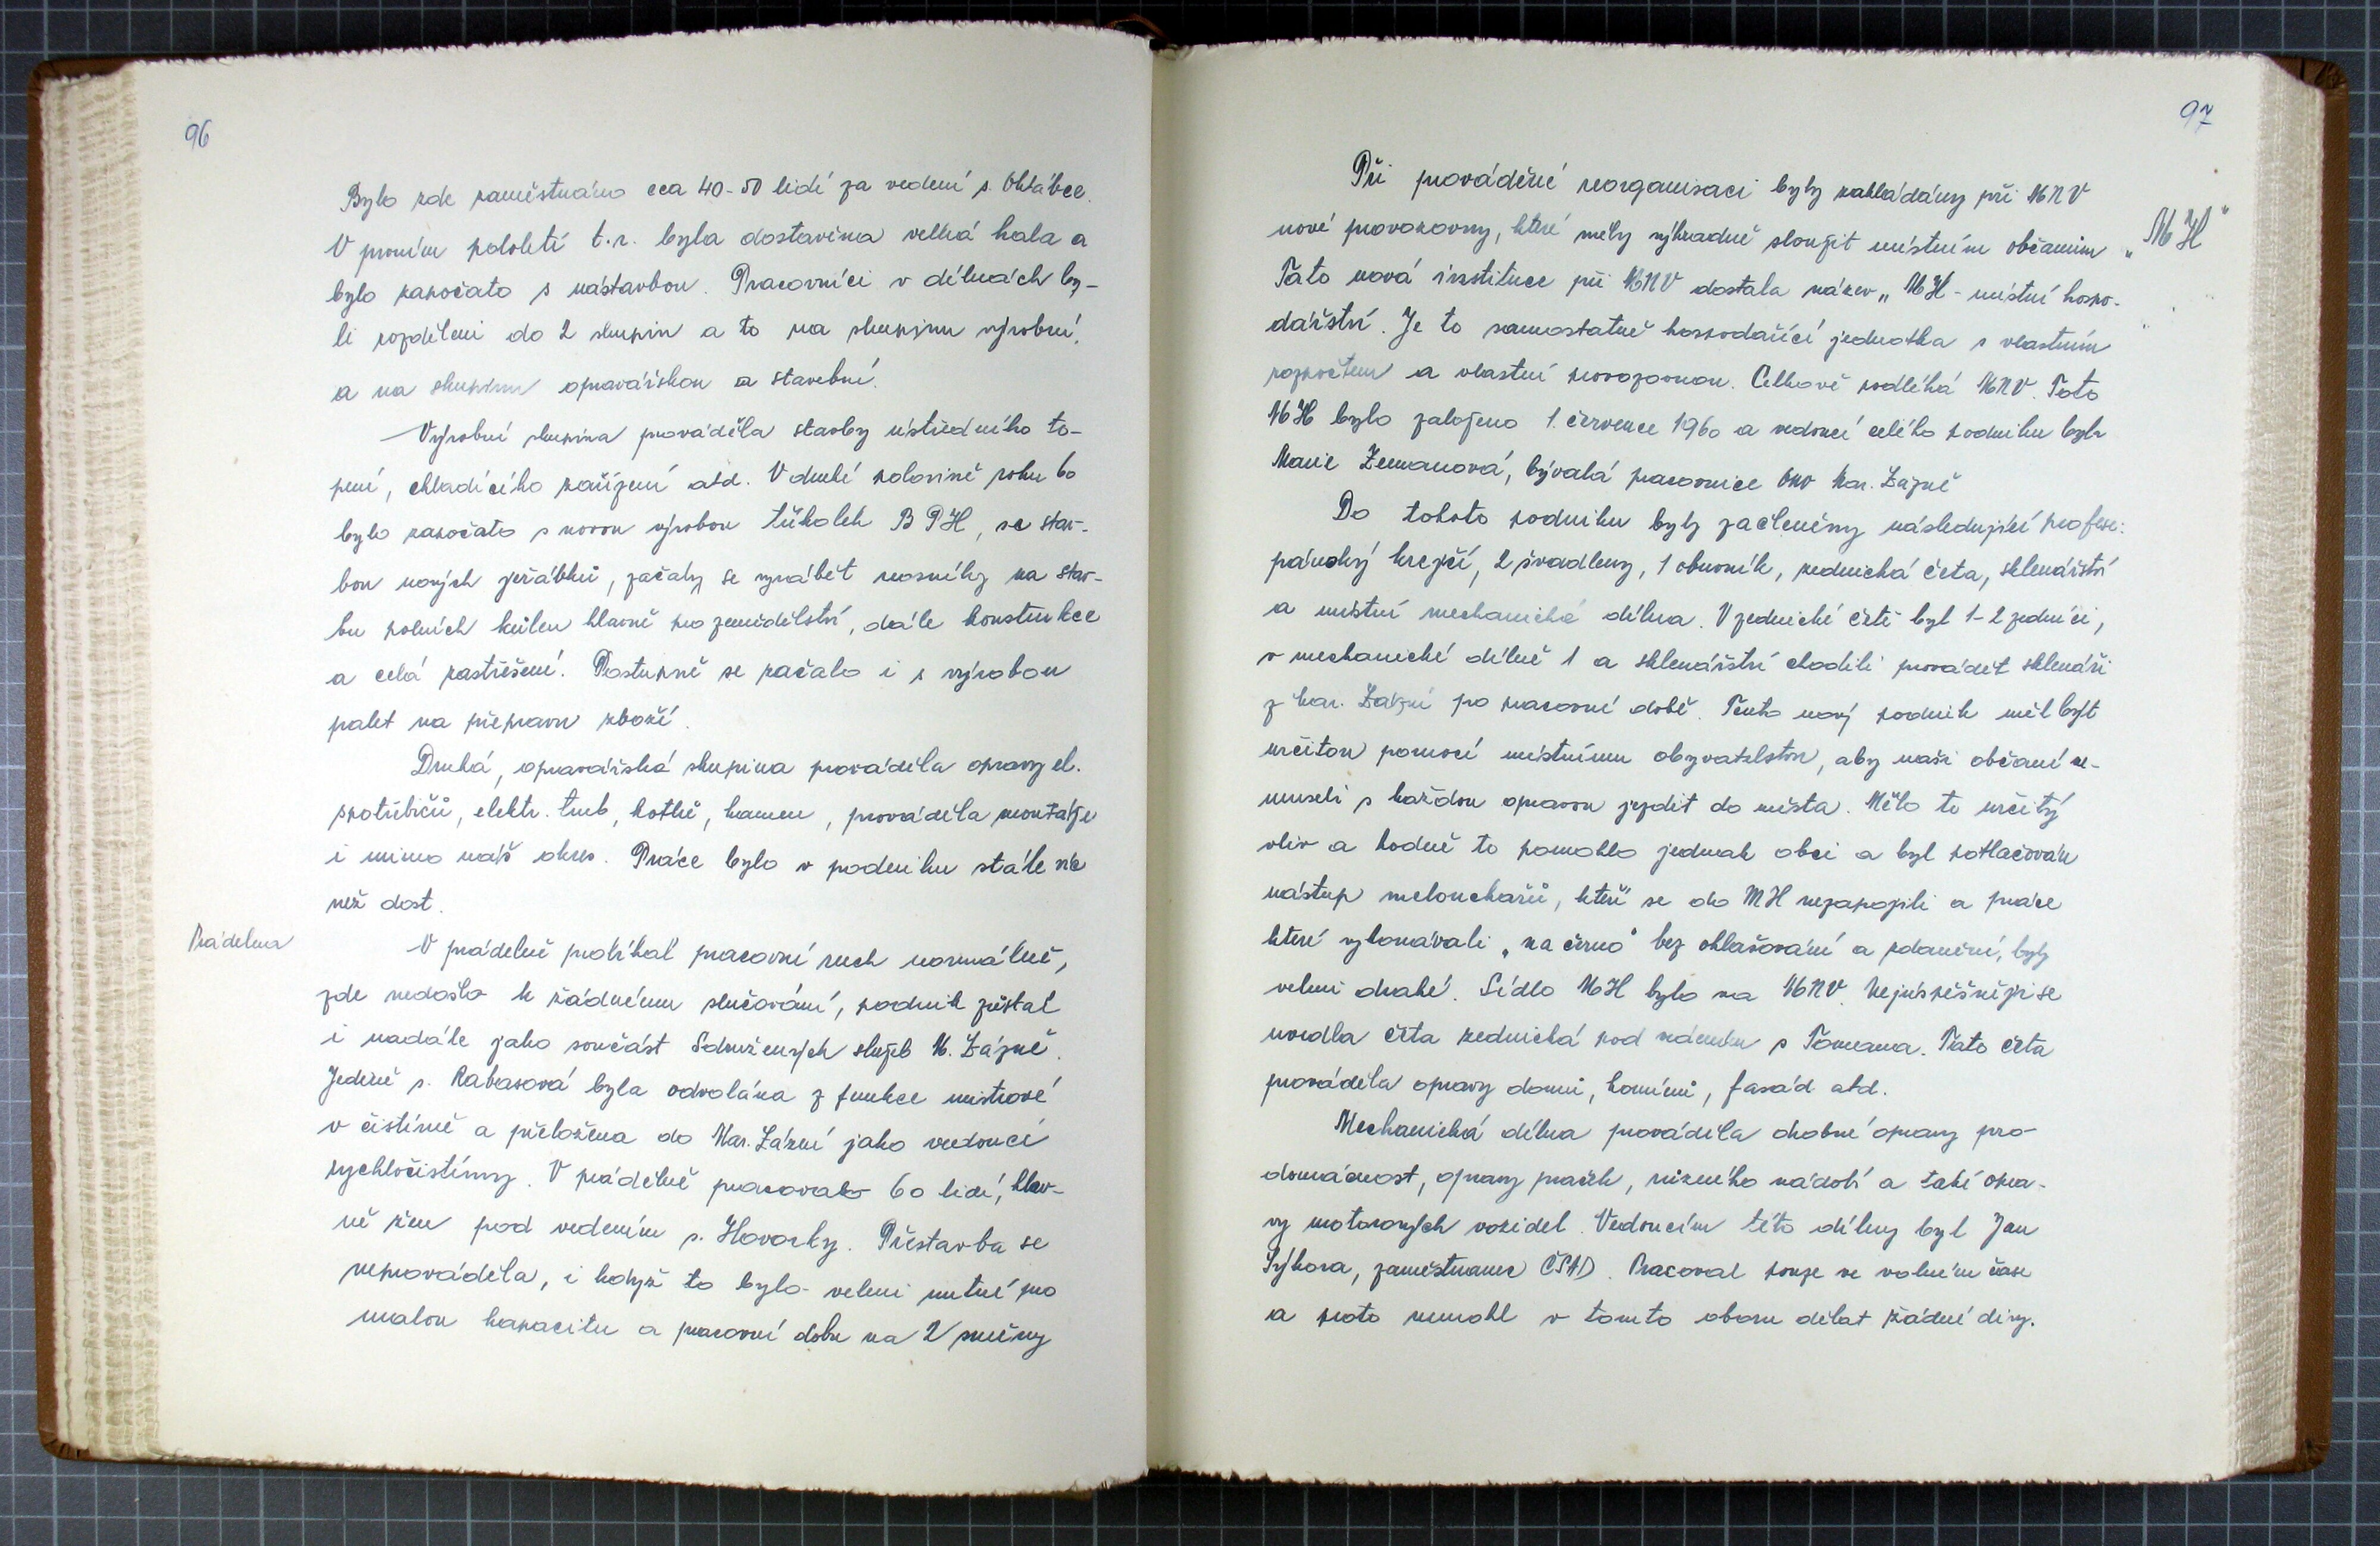 96
Bylo zde zaměstnáno cca 40-50 lidí za vedení s. Chlábce.
V prvním pololetí t.r. byla dostavěna velká hala a
bylo započato s nástavbou. Pracovníci v dílnách by-
li rozděleni do 2 skupin a to na skupinu výrobní,
a na skupinu opravářskou a stavební.
Výrobní skupina prováděla stavby ústředního to-
pení, chladícího zařízení atd. V druhé polovině roku 60
bylo započato s novou výrobou BPH, se stav-
bou nových jeřábků, začaly se vyrábět nosníky na stav-
bu polních kůlen hlavně pro zemědělství, dále konstrukce
a celá zastřešení. Postupně se začalo i s výrobou
palet na přepravu zboží.
Druhá, opravářská skupina prováděla opravy el.
spotřebičů, elektr. trub, kotlů, kamen, prováděla montáže
i mimo náš okres. Práce bylo v podniku stále víc
než dost.
Prádelna
V prádelně probíhal pracovní ruch normálně,
zde nedošlo k žádnému slučování, podnik zůstal
i nadále jako součást Sdružených služeb M. Lázně.
Jedině s. Rabasová byla odvolána z funkce mistrové
v čistírně a přeložena do Mar. Lázní jako vedoucí
rychločistírny. V prádelně pracovalo 60 lidí, hlav-
ně žen pod vedením s. Hovorky. Přestavba se
neprováděla, i když to bylo velmi nutné pro
malou kapacitu a pracovní dobu na 2 směny
97
Při prováděné reorganisaci byly zakládány při MNV
nové provozovny, které měly výhradně sloužit místním občanům
„MH"
Tato nová instituce při MNV dostala název „MH - místní hospo-
dářství. Je to samostatně hospodařící jednotka s vlastním
rozpočtem a vlastní provozovnou. Celkově podléhá MNV. Toto
MH bylo založeno 1. července 1960 a vedoucí celého podniku byla
Marie Zemanová, bývalá pracovnice ONV Mar. Lázně
Do tohoto podniku byly začleněny následující profese:
pánský krejčí, 2 švadleny, 1 obuvník, zednická četa, sklenářství
a místní mechanická dílna. V zednické četě byl 1-2 zedníci,
v mechanické dílně 1 a sklenářství chodili provádět sklenáři
z Mar. Lázní po pracovní době. Tento nový podnik měl být
určitou pomocí místnímu obyvatelstvu, aby naši občané ne-
museli s každou opravou jezdit do města. Mělo to určitý
vliv a hodně to pomohlo jednak obci a byl potlačován
nástup melouchařů, kteří se do MH nezapojili a práce
které vykonávali „na černo" bez ohlašování a zdanění, byly
velmi drahé. Sídlo MH bylo na MNV. Nejúspěšněji se
uvedla četa zednická pod vedením s Tomana. Tato četa
prováděla opravy domů, komínů, fasád atd.
Mechanická dílna prováděla drobné opravy pro
domácnost, opravy praček, různého nádobí a také opra-
vy motorových vozidel. Vedoucím této dílny byl Jan
Sýkora, zaměstnanec ČSAD. Pracoval pouze ve volném čase
a proto nemohl v tomto oboru dělat žádné divy.